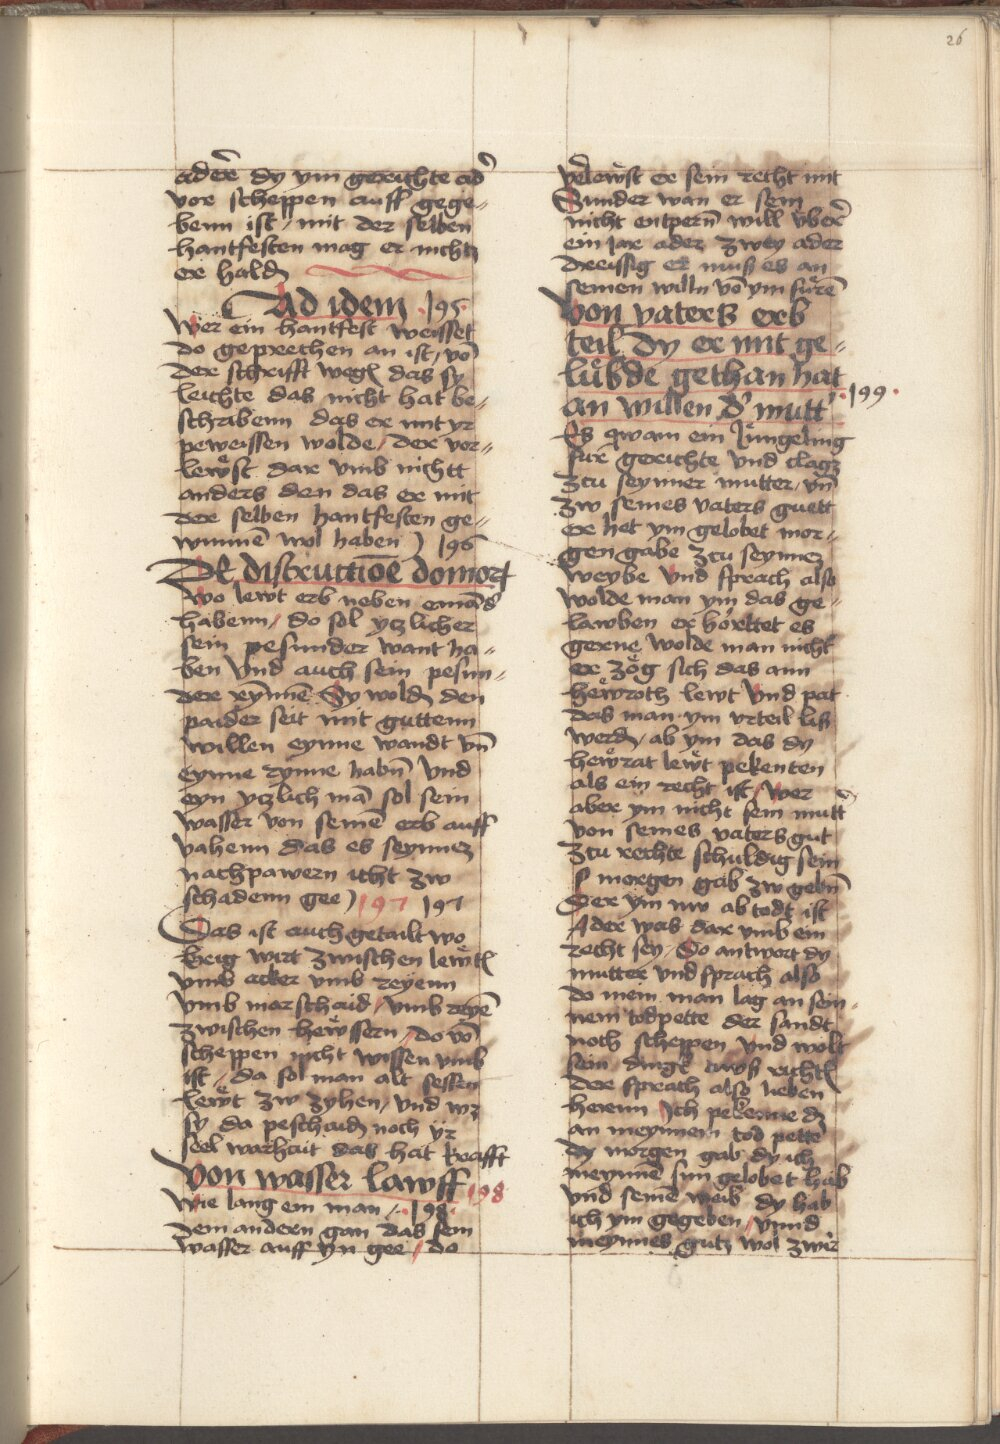 26
aderē dy ym gerichte ad'
vor scheppen auff gege-
benn ist / mit der selben
hantfesten mag er nichtz
er hald
Ad idem . 195 .
Wer ein hantfest weisset
do geprechen an ist / vō
der schrifft weg das sy
leichte das nicht hat be-
schribenn das er mit yr
peweissen wolde / der vor-
lewst dar vmb nichtt
anders den das er mit
der selben hantfesten ge-
winnē wol haben ) 196
De distructioē domorꝝ
Wo lewt erb neben emād'
habenn / do sol yczlicher
sein pesunder want ha-
ben Vnd auch sein pesun-
der rynne Sy wold den
paider seit mit guttenn
willen eynne wandt vn̄
eynne rynne habn̄ Vnd
eyn yczlich mā sol sein
wasser von seinē erb auff
vahenn das es seynnez
nachpawern icht zw
schadenn gee ) 197 197
Das ist auch getailt wo
krig wirt zwischen lewt
vmb acker vmb reyenn
vmb marschaid / vmb reyē
zwischen hewssern / do vō
scheppen nicht wissen vmb
ist / da sol man alt sessen
lewt zw zyhen / vnd wz
sy da peschaid noch yr
seel warhait das hat krafft
Von wasser lawff 198
Wie lang ein man / . 198 .
dem andern gan das sein
wasser auff yn gee / do
v'lewst er sein recht mit
Sunder wan er sein
nicht entpern̄ will vber
ein jar ader zwey ader
dreissig er muß es an
seinen willn vō ym furē
Von vaters erb
teil dy er mit ge-
lubde gethan hat
an willen d' mutt' . 199 .
Es qwam ein Jungeling
fur gerichte vnd clagz
zcu seynner mutter / vn̄
zw seines vaters guett
er het ym gelobet mor-
gen gabe zcu seynnez
weybe Vnd sprach also
wolde man ym das ge-
lawben er horttet es
gerne wolde man nicht
er zog sich das ann
hewroth lewt Vnd pat
das man ym vrteil liß
werd / ab ym das dy
hewrat lewt pekenten
als ein recht ist / Wer
aber ym nicht sein mutt'
von seines vaters gut
zcu rechte schuldig sein
morgen gab zw gebn̄
Der ym nw ab todt ist
Ader was dar vmb ein
recht sey / Do antwort dy
mutter vnd sprach also
do mein man lag an sein-
nem todpette der sandt
noch scheppen vnd wolt
sein dingk awß richt
der sprach also lieben
herenn Ich pekenne d
an meynnem tod pette
dy morgen gab dy ich
meynnē sun gelobet hab
vnd seinē weib dy hab
ich ym gegeben / vnnd
meynnes gutz wol zwir